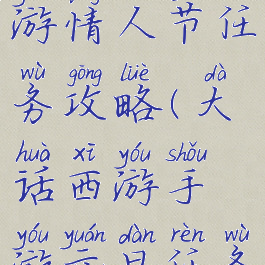 游情人节任
wù gōng lüè dà
务攻略(大
huà xī yóu shǒu
话西游手
yóu yuán dàn rèn wù
游元旦任务